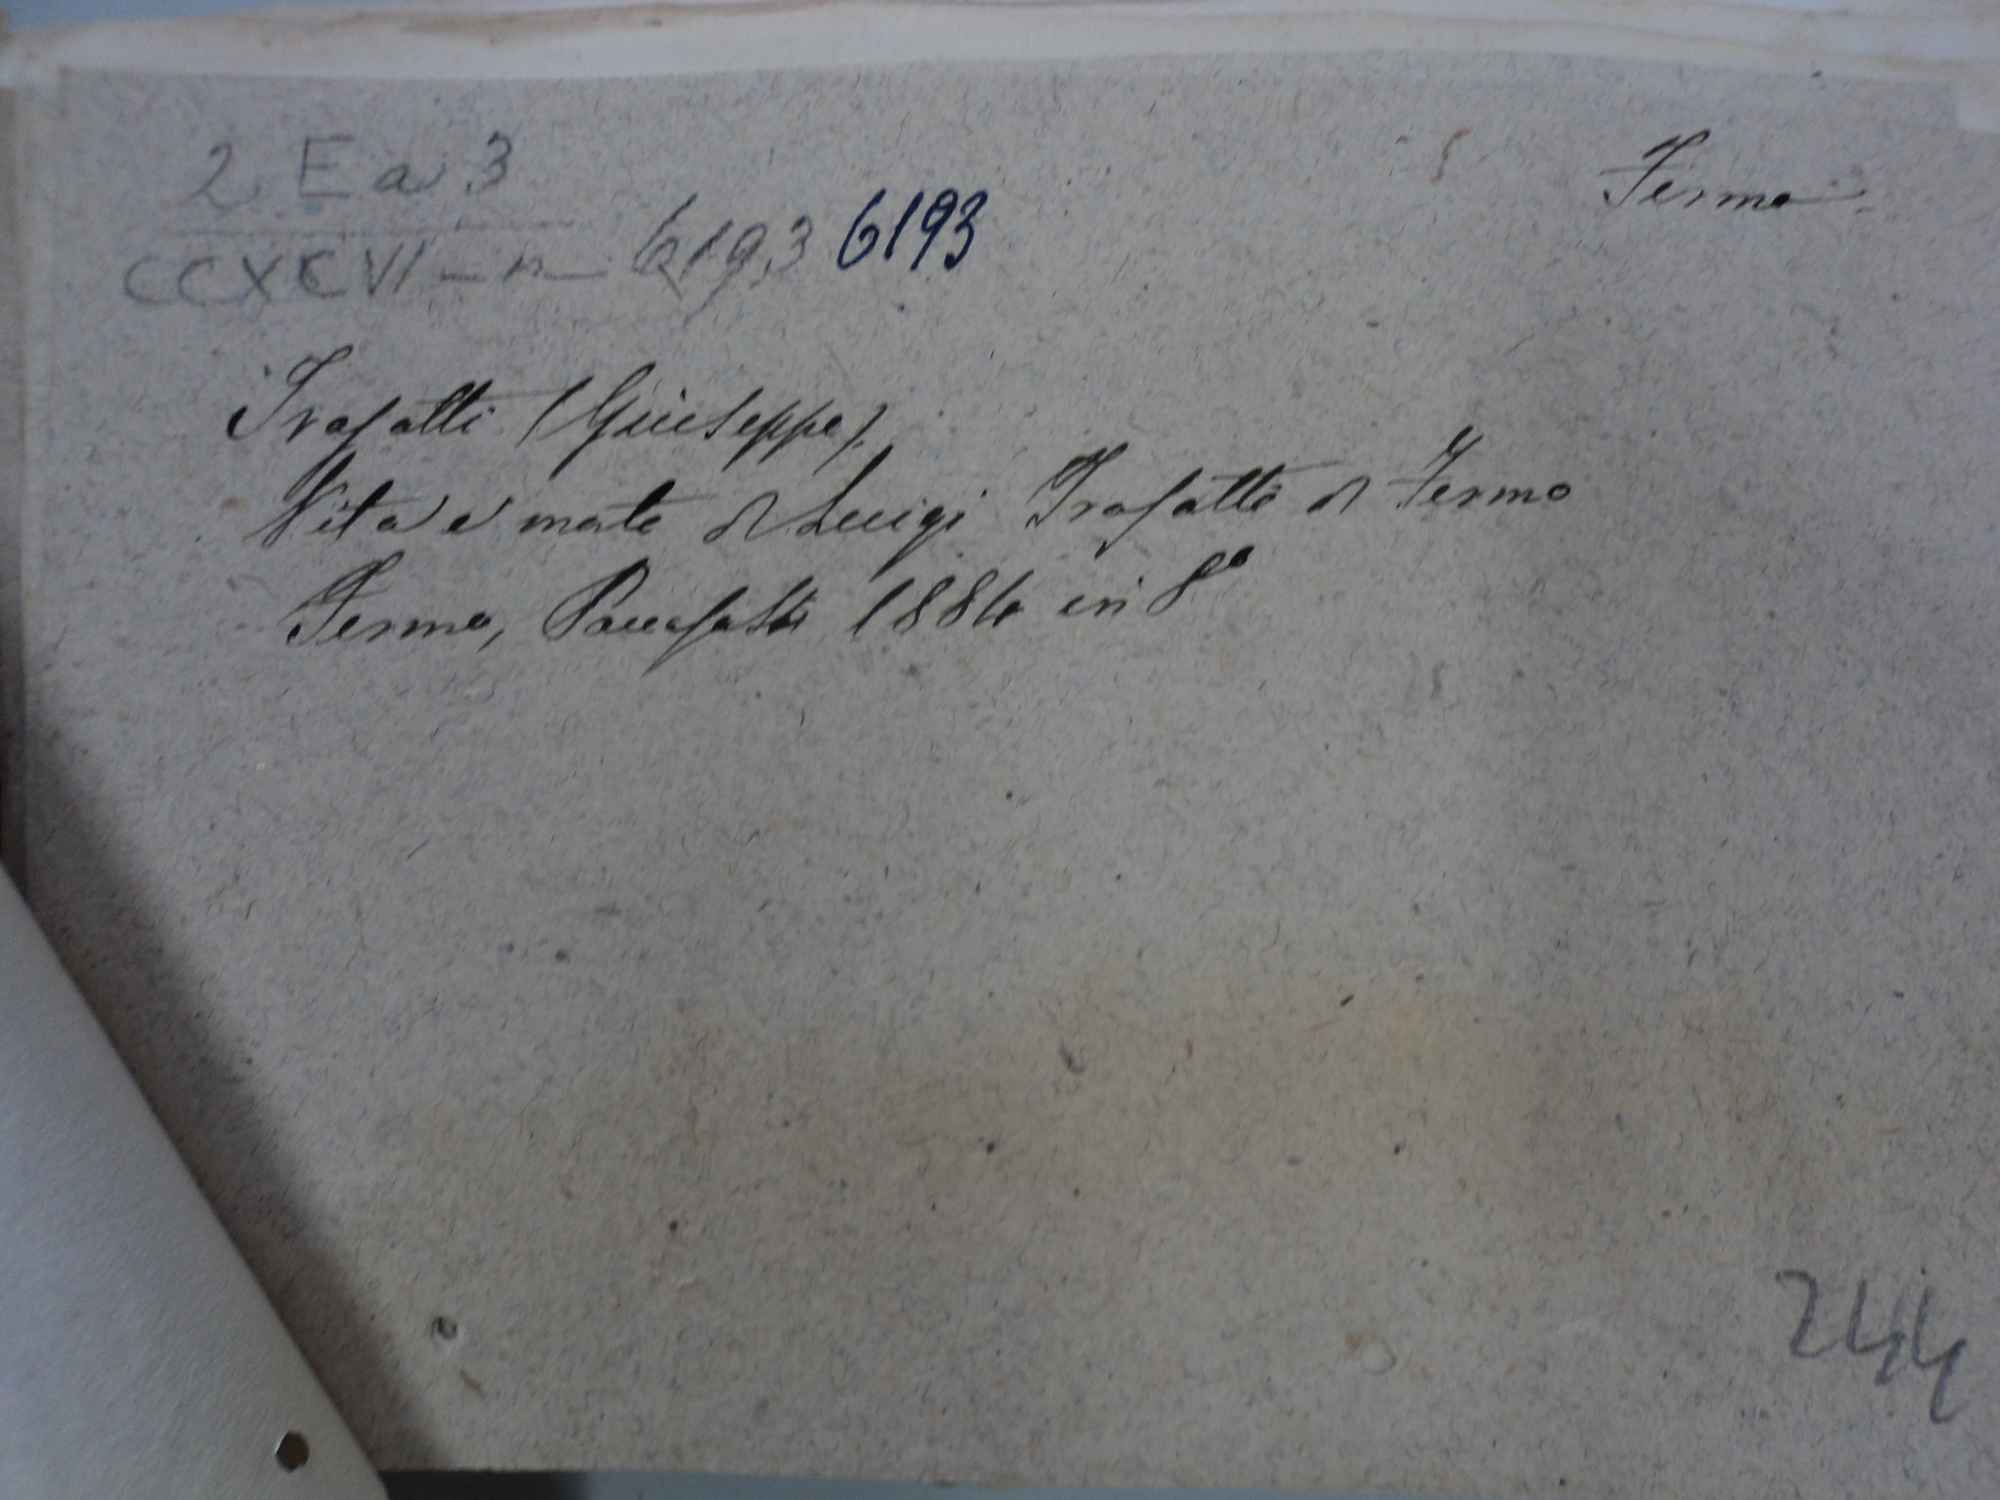 2 E a 3
Fermo
CCXCVI - n 6193 6193
Trasatti (Giuseppe).
Vita e morte di Luigi Trasatti di Fermo
Fermo, Paccasassi 1884 in 8°
244